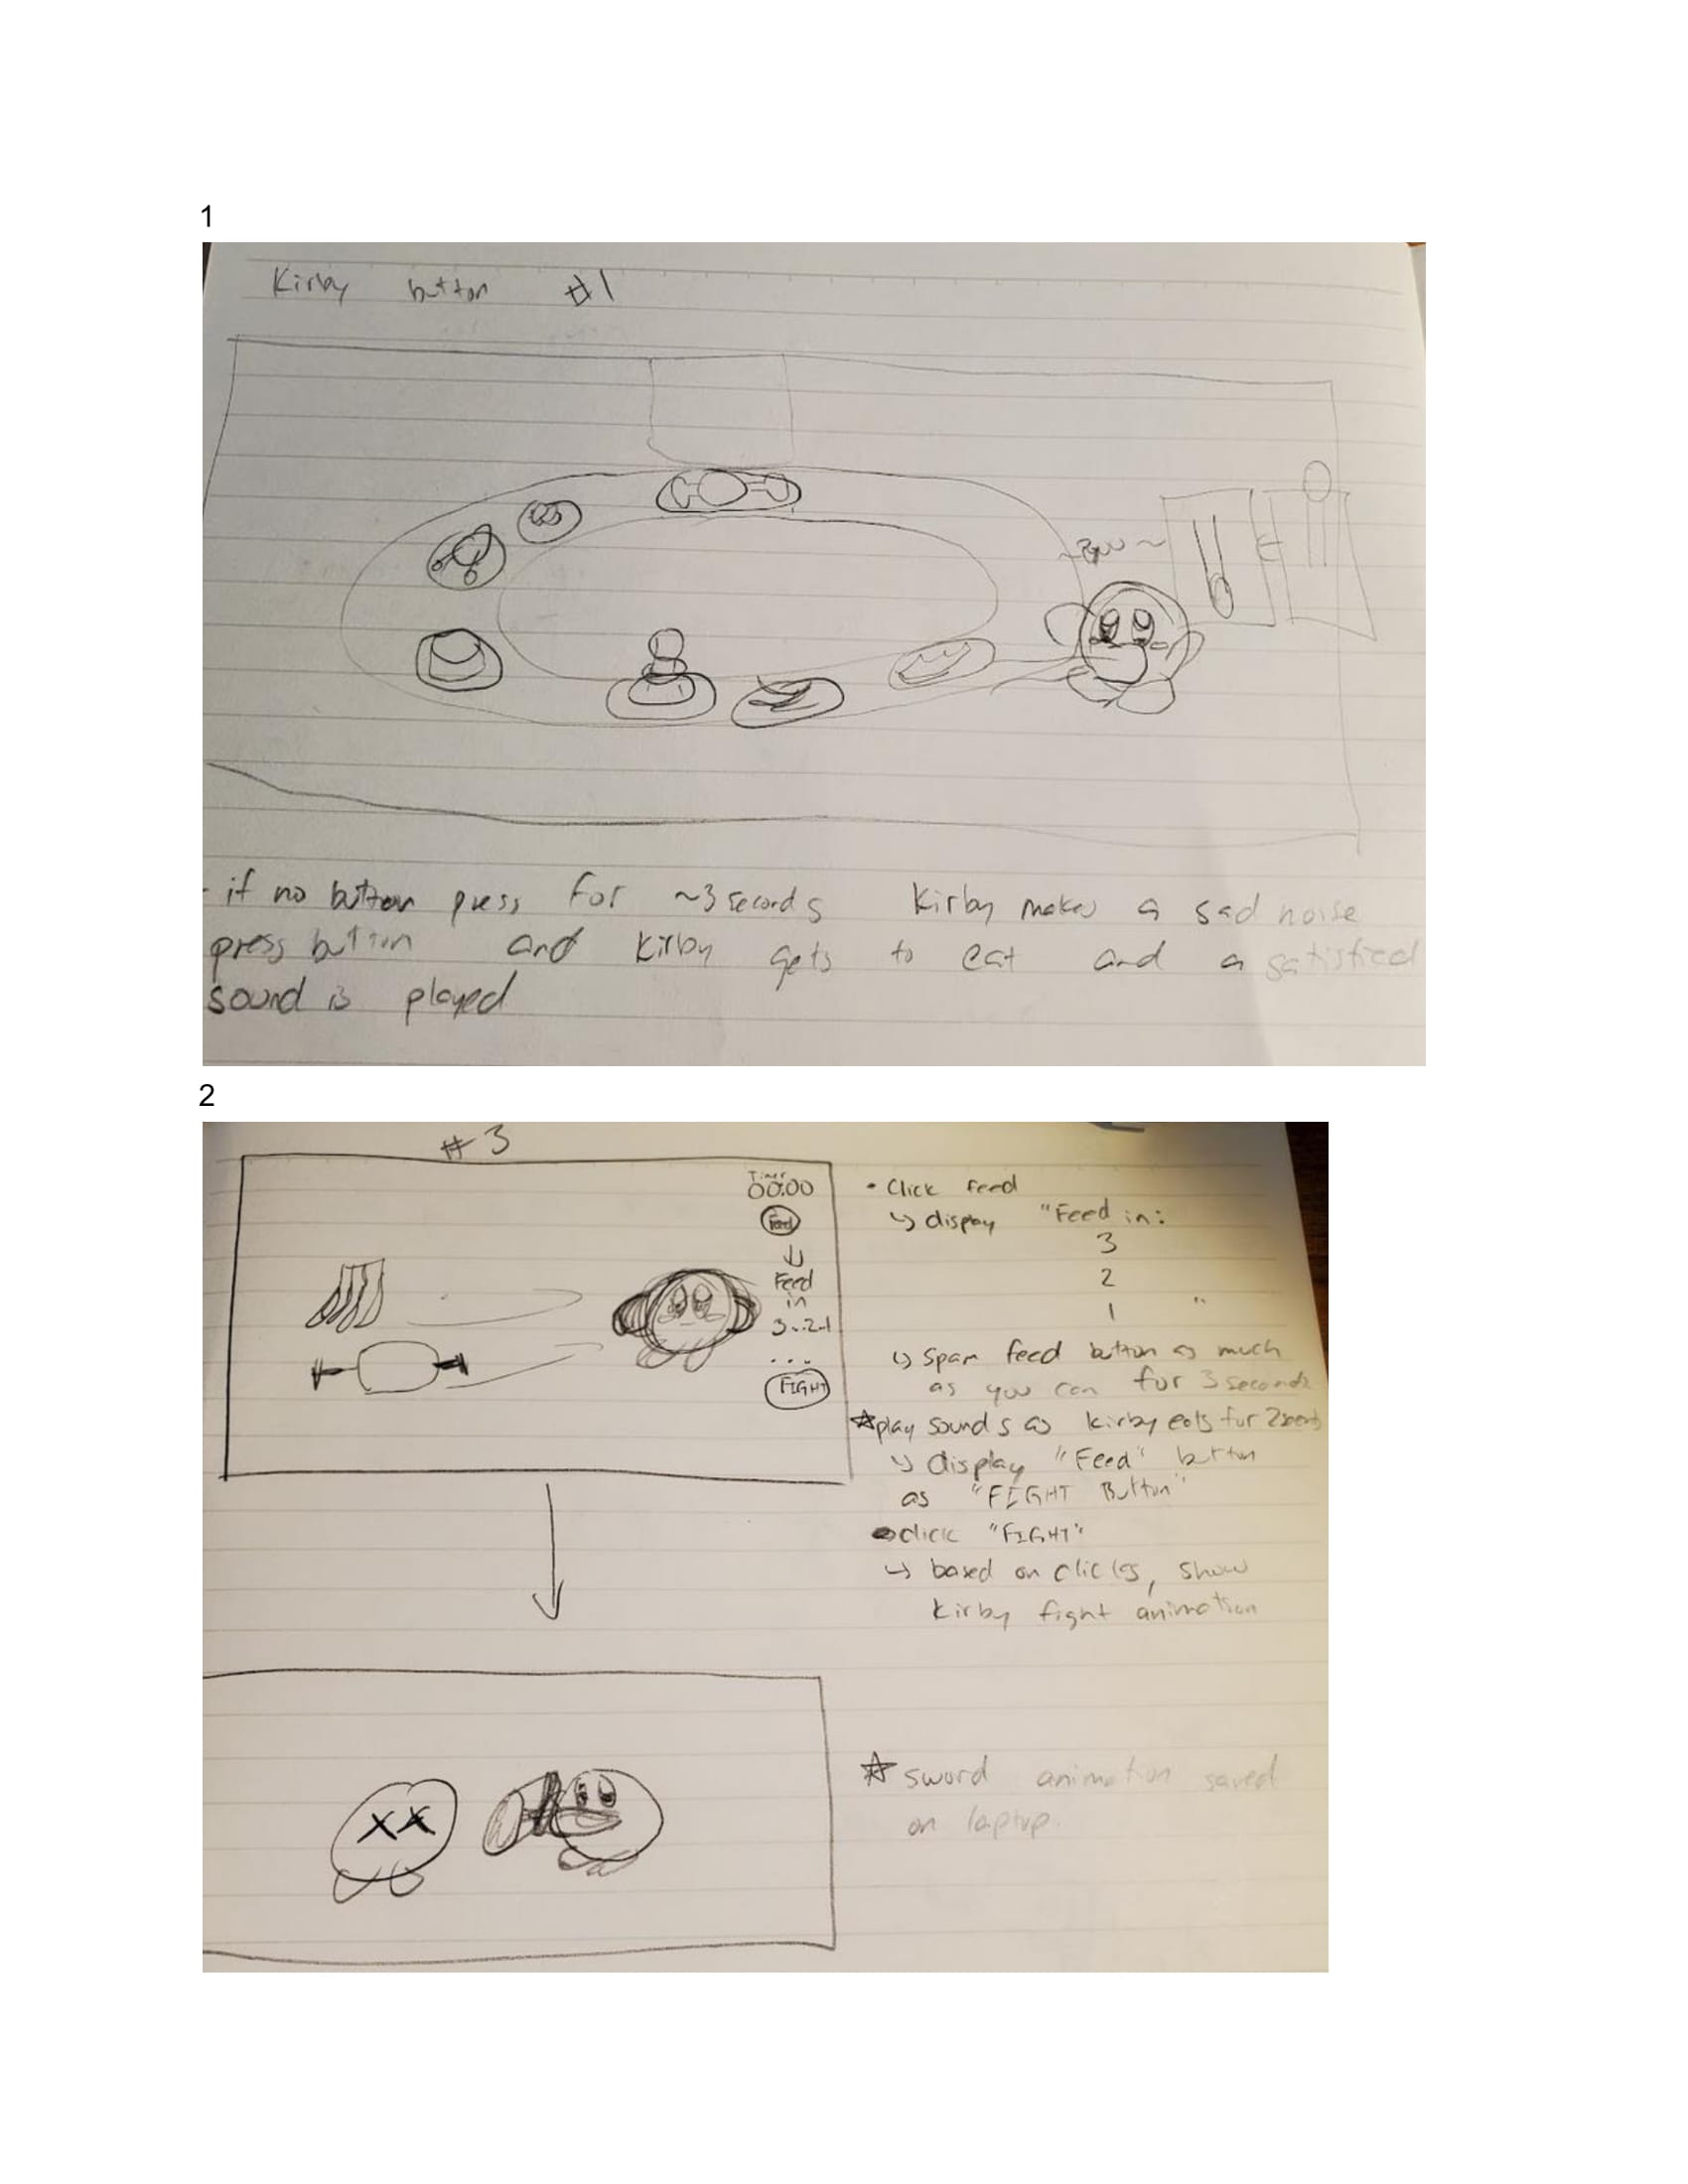 1
Kirby button #1
- if no button press for ~3 seconds Kirby makes a sad noise
press button and Kirby gets to eat and a satisfied
sound is played
2
#3
Timer
00:00
Feed
↓
Feed
in
3..2..1
...
FIGHT
• Click feed
↳ display "Feed in:
3
2
1 "
↳ Spam feed button as much
as you can for 3 seconds
☆play sounds as Kirby eats for 2 seconds
↳ display "Feed" button
as "FIGHT Button"
• click "FIGHT"
↳ based on clicks, show
Kirby fight animation
☆ sword animation saved
on laptop.